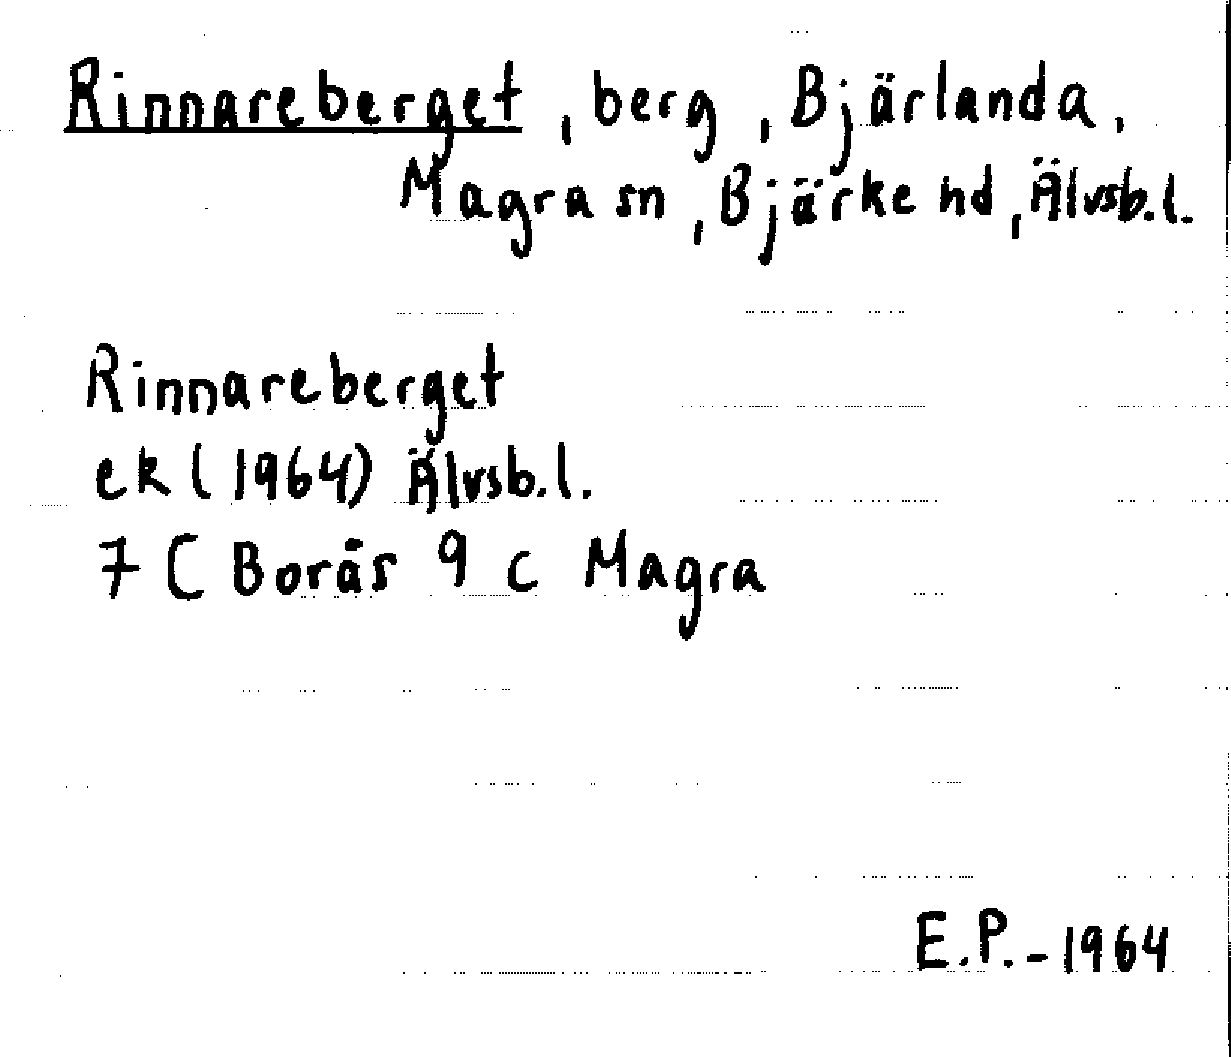 Rinnareberget, berg, Bjärlanda,
Magra sn, Bjärke hd, Älvsb.l.
Rinnareberget
ek (1964) Älvsb.l.
7 C Borås 9 c Magra
E.P. - 1964